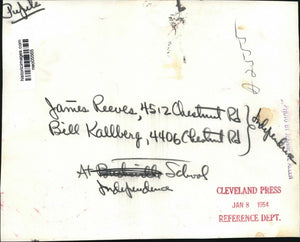 Pupils
historicimages.com
James Reeves, 4512 Chestnut Rd
Bill Kallberg, 4406 Chestnut Rd
Independence
At School
Independence
CLEVELAND PRESS
JAN 8 1954
REFERENCE DEPT.